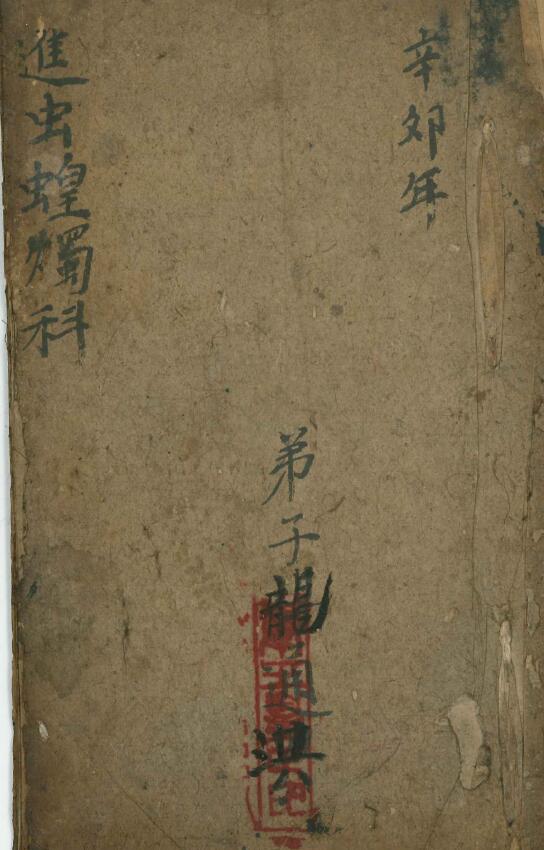 辛卯年
弟子龍通洪
進虫蝗燭科